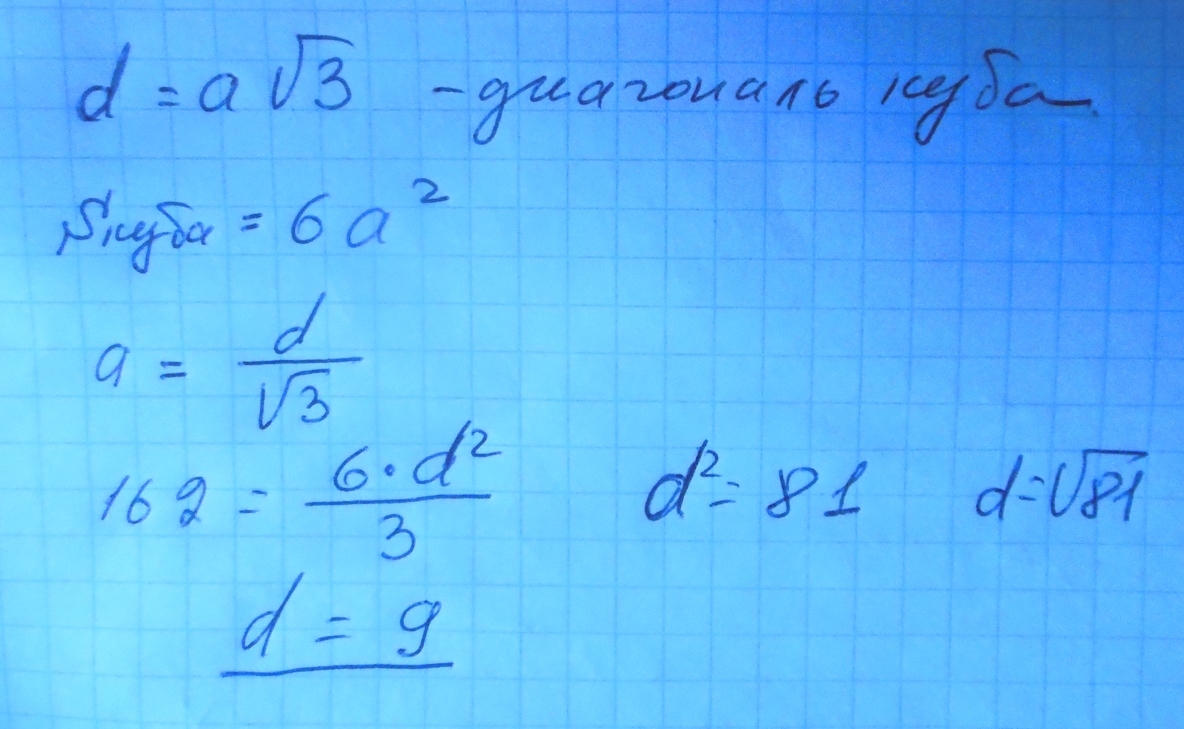 d = a√3 - диагональ куба.
Sкуба = 6a²
a = d/√3
162 = 6·d²/3 d² = 81 d = √81
d = 9